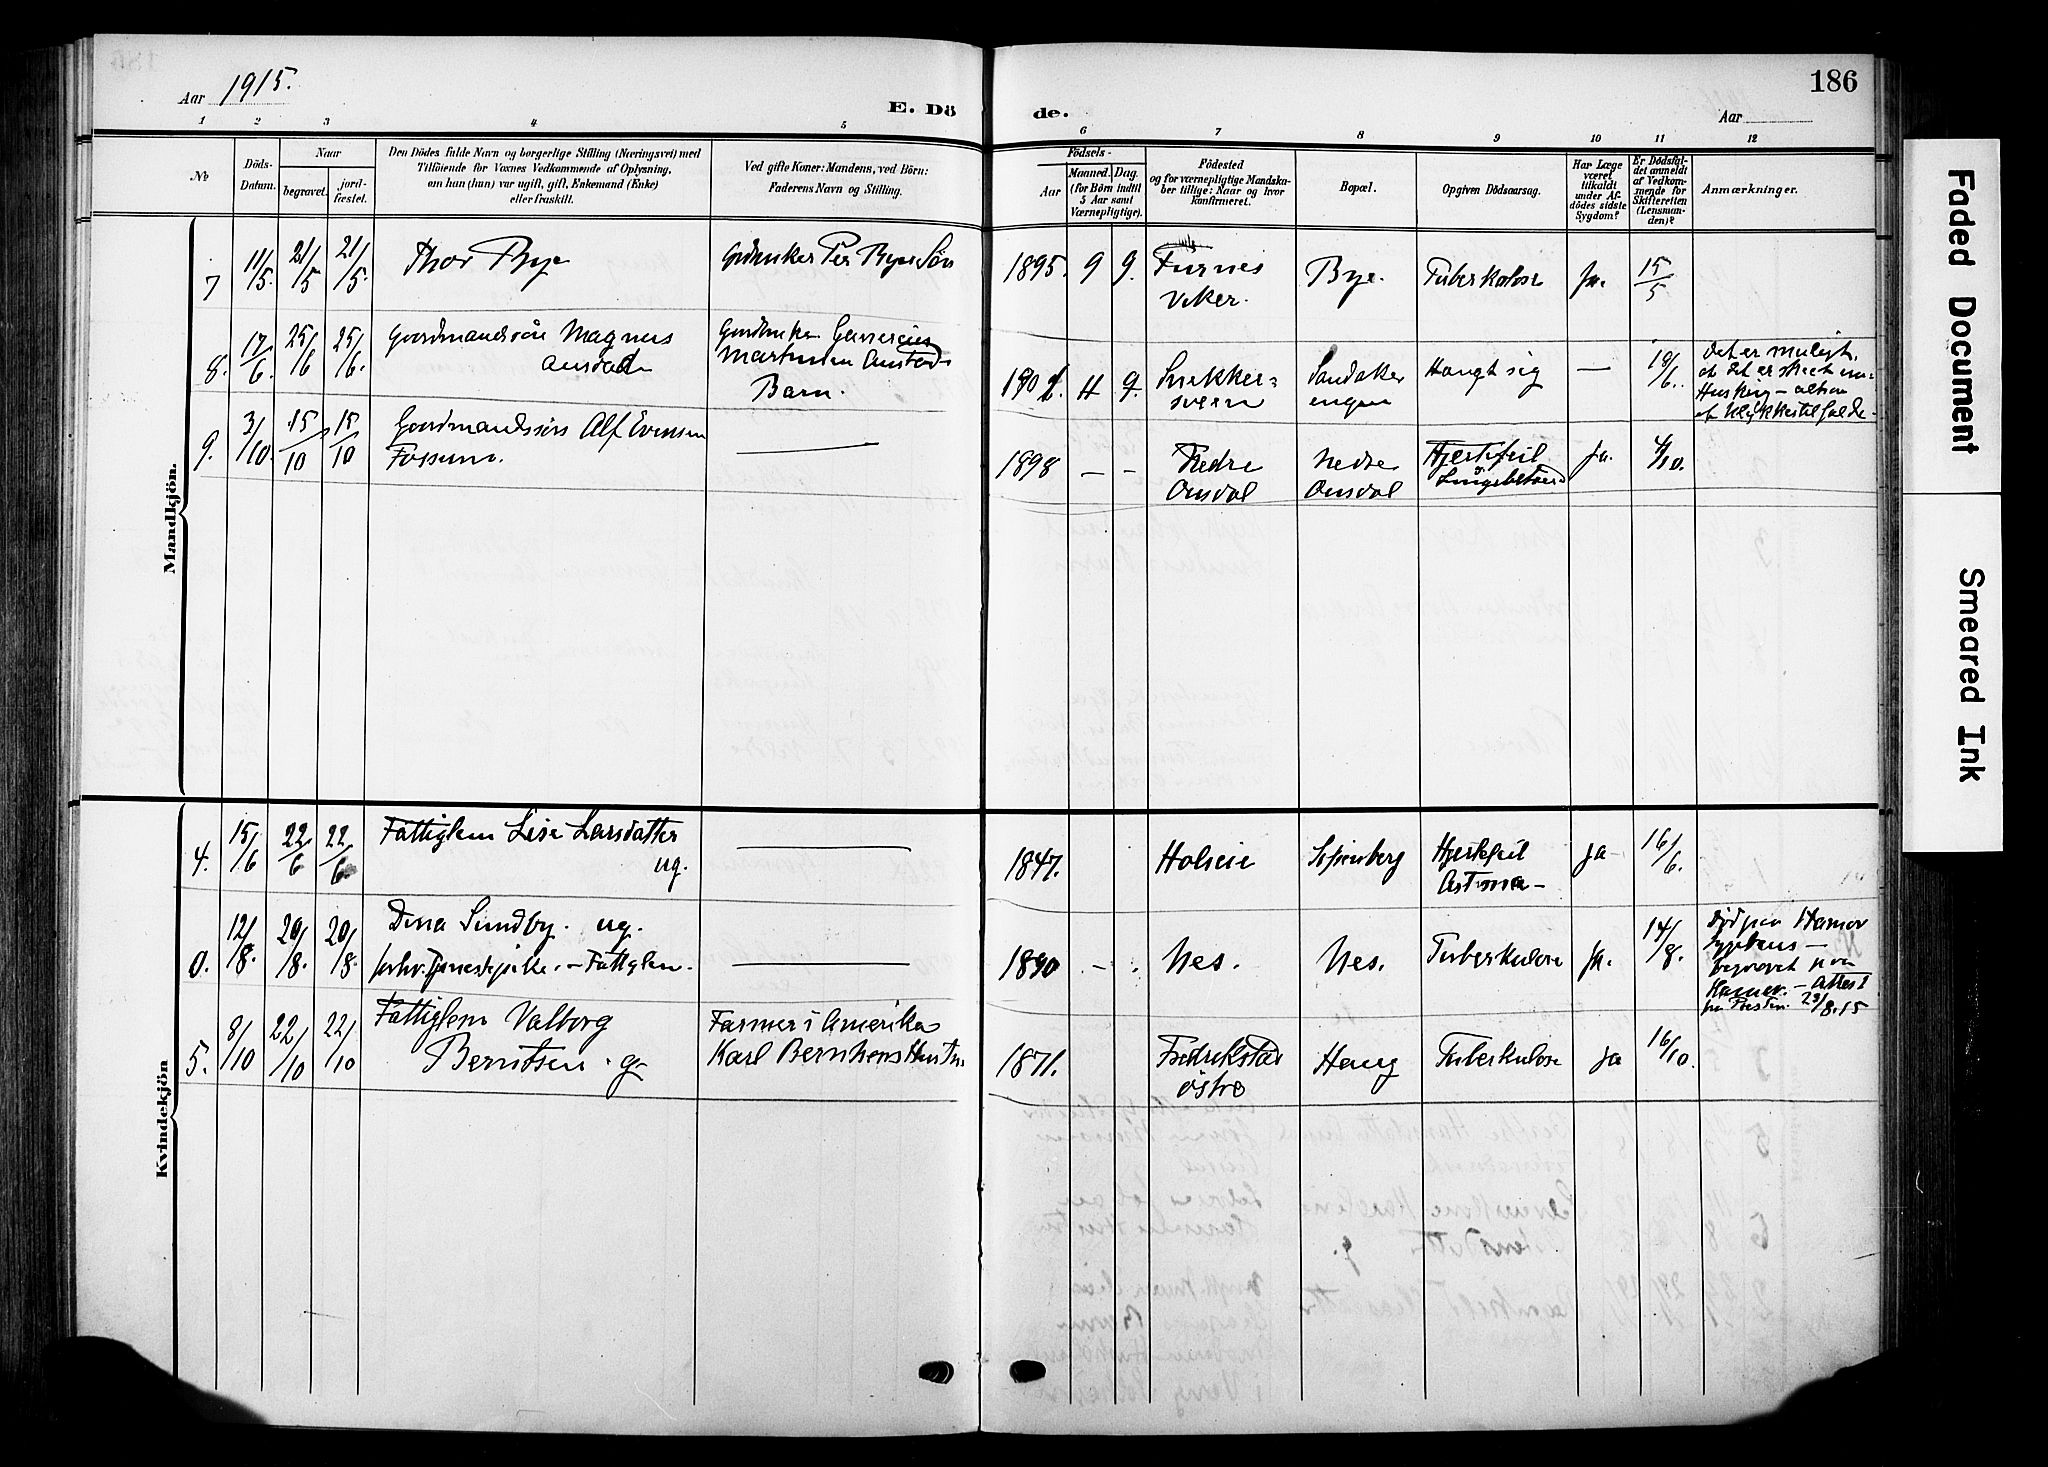 Aar 1915.
E. Dö
de.
186
Aar
1 2 3 4 5 6 7 8 9 10 11 12
No
Döds-
Datum.
Naar
begravet.
jord-
fæstet.
Den Dödes fulde Navn og borgerlige Stilling (Næringsvei) med
Tilföiende for Voxnes Vedkommende af Oplysning,
om han (hun) var ugift, gift, Enkemand (Enke)
eller fraskilt.
Ved gifte Koner: Mandens, ved Börn:
Faderens Navn og Stilling.
Födsels-
Aar
Maaned. Dag.
(for Börn indtil
5 Aar samt
Værnepligtige).
Födested
og for værnepligtige Mandska-
ber tillige: Naar og hvor
konfirmeret.
Bopæl.
Opgiven Dödsaarsag.
Har Læge
været
tilkaldt
under Af-
dödes sidste
Sygdom?
Er Dödsfal-
det anmeldt
af Vedkom-
mende for
Skifteretten
(Lensman-
den)?
Anmærkninger.
Mandkjön.
7 11/5. 21/5 21/5. Thor Bye
Per Byes Søn
1895. 9 9. Furnes
Veker.
Bye. Tuberkulose Ja. 15/5
8. 17/6. 25/6 25/6. Gaardmandssøn Magnus
Martinsen
Barn.
4 9. Snekker-
sveen
Sandaker
engen
Hængt sig — 18/6.
Det er muligt,
at det er skeet
9. 3/10. 15/10 15/10 Gaardmandssøn Alf Evensen
Fossum.
1898 — — Nedre
Aasdal
Nedre
Aasdal
Hjertefeil
Ja. 4/10.
Kvindekjön
4. 15/6 22/6 22/6. Fattiglem Lise Larsdatter
ug.
1847. Holseie Hjertefeil
Astma —
Ja 16/6.
0. 12/8. 20/8. 20/8. Dina Sundby. ug.
forhv. Tjenestepike. — Fattiglem.
1890 — Nes. Nes. Tuberkulose Ja. 14/8.
Død paa Hamar
Sygehus —
begravet paa
Hamar. — Attest
fra Presten 23/8.15
5. 8/10 22/10 22/10 Fattiglem Valborg
Berntsen. g.
Farmer i Amerika
Karl Hustru
1871. Fredrikstad
østre
Haug Tuberkulose Ja 16/10.
Faded Document
Smeared Ink